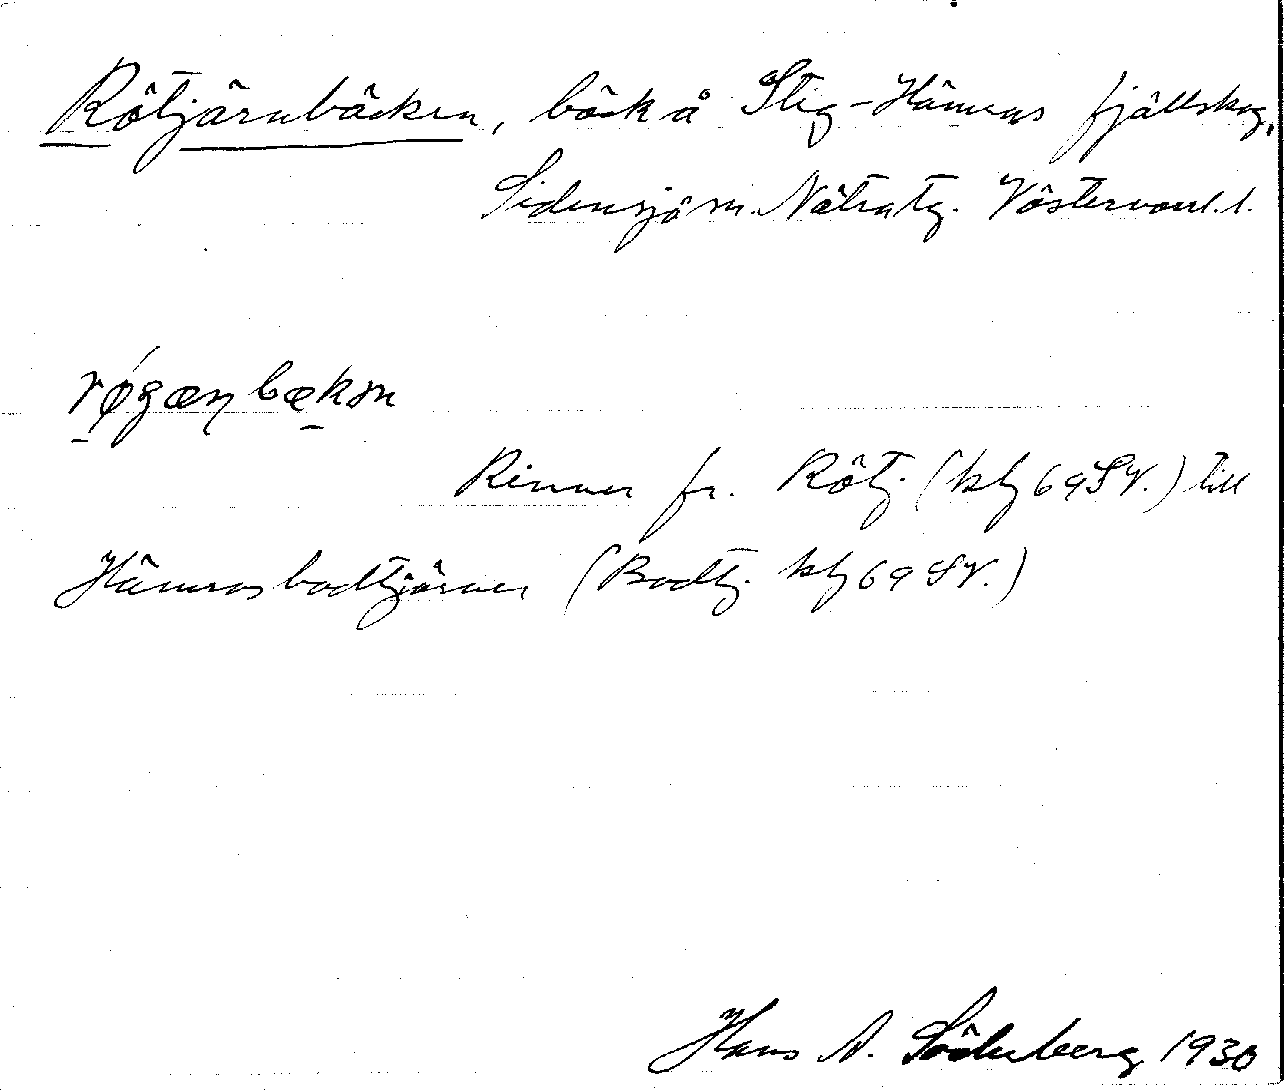 Rötjärnbäcken, bäck å Stig-Hämras fjällskog,
Sidensjö sn. Nätra tg. Västernorrl. l.
Rinner fr. Rötj. (kbl 69 SV.) till
Hämrasbodtjärnen (Bodtj. kbl 69 SV.)
Hans A. Söderberg 1930